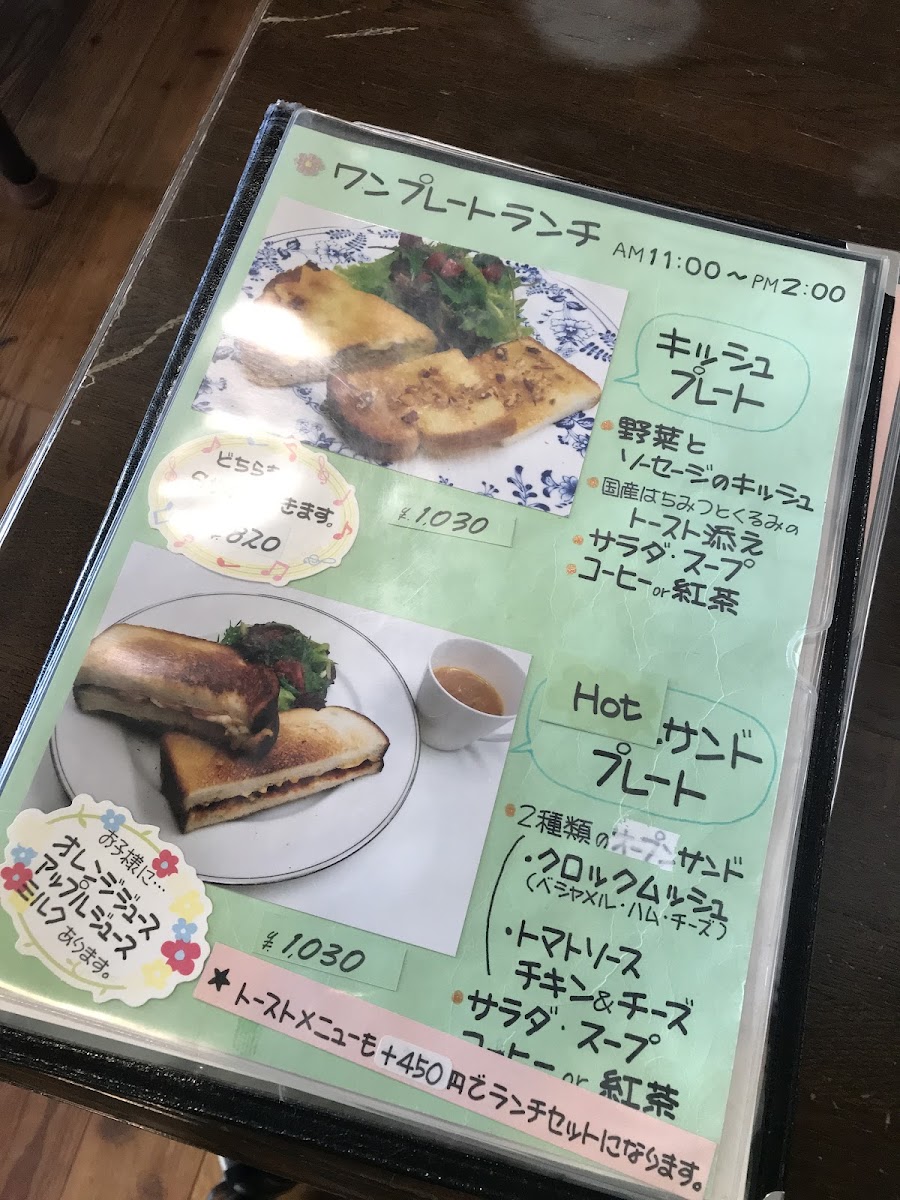 ワンプレートランチ AM11:00〜PM2:00
キッシュ
プレート
野菜と
ソーセージのキッシュ
国産はちみつとくるみの
トースト添え
サラダ・スープ
コーヒーor紅茶
どちらも
きます。
¥820
¥1,030
Hot サンド
プレート
2種類のオープンサンド
・クロックムッシュ
(ベシャメル・ハム・チーズ)
・トマトソース
チキン&チーズ
サラダ・スープ
コーヒー or 紅茶
お子様に…
オレンジジュース
アップルジュース
ミルク あります。
¥1,030
★トーストメニューも+450円でランチセットになります。